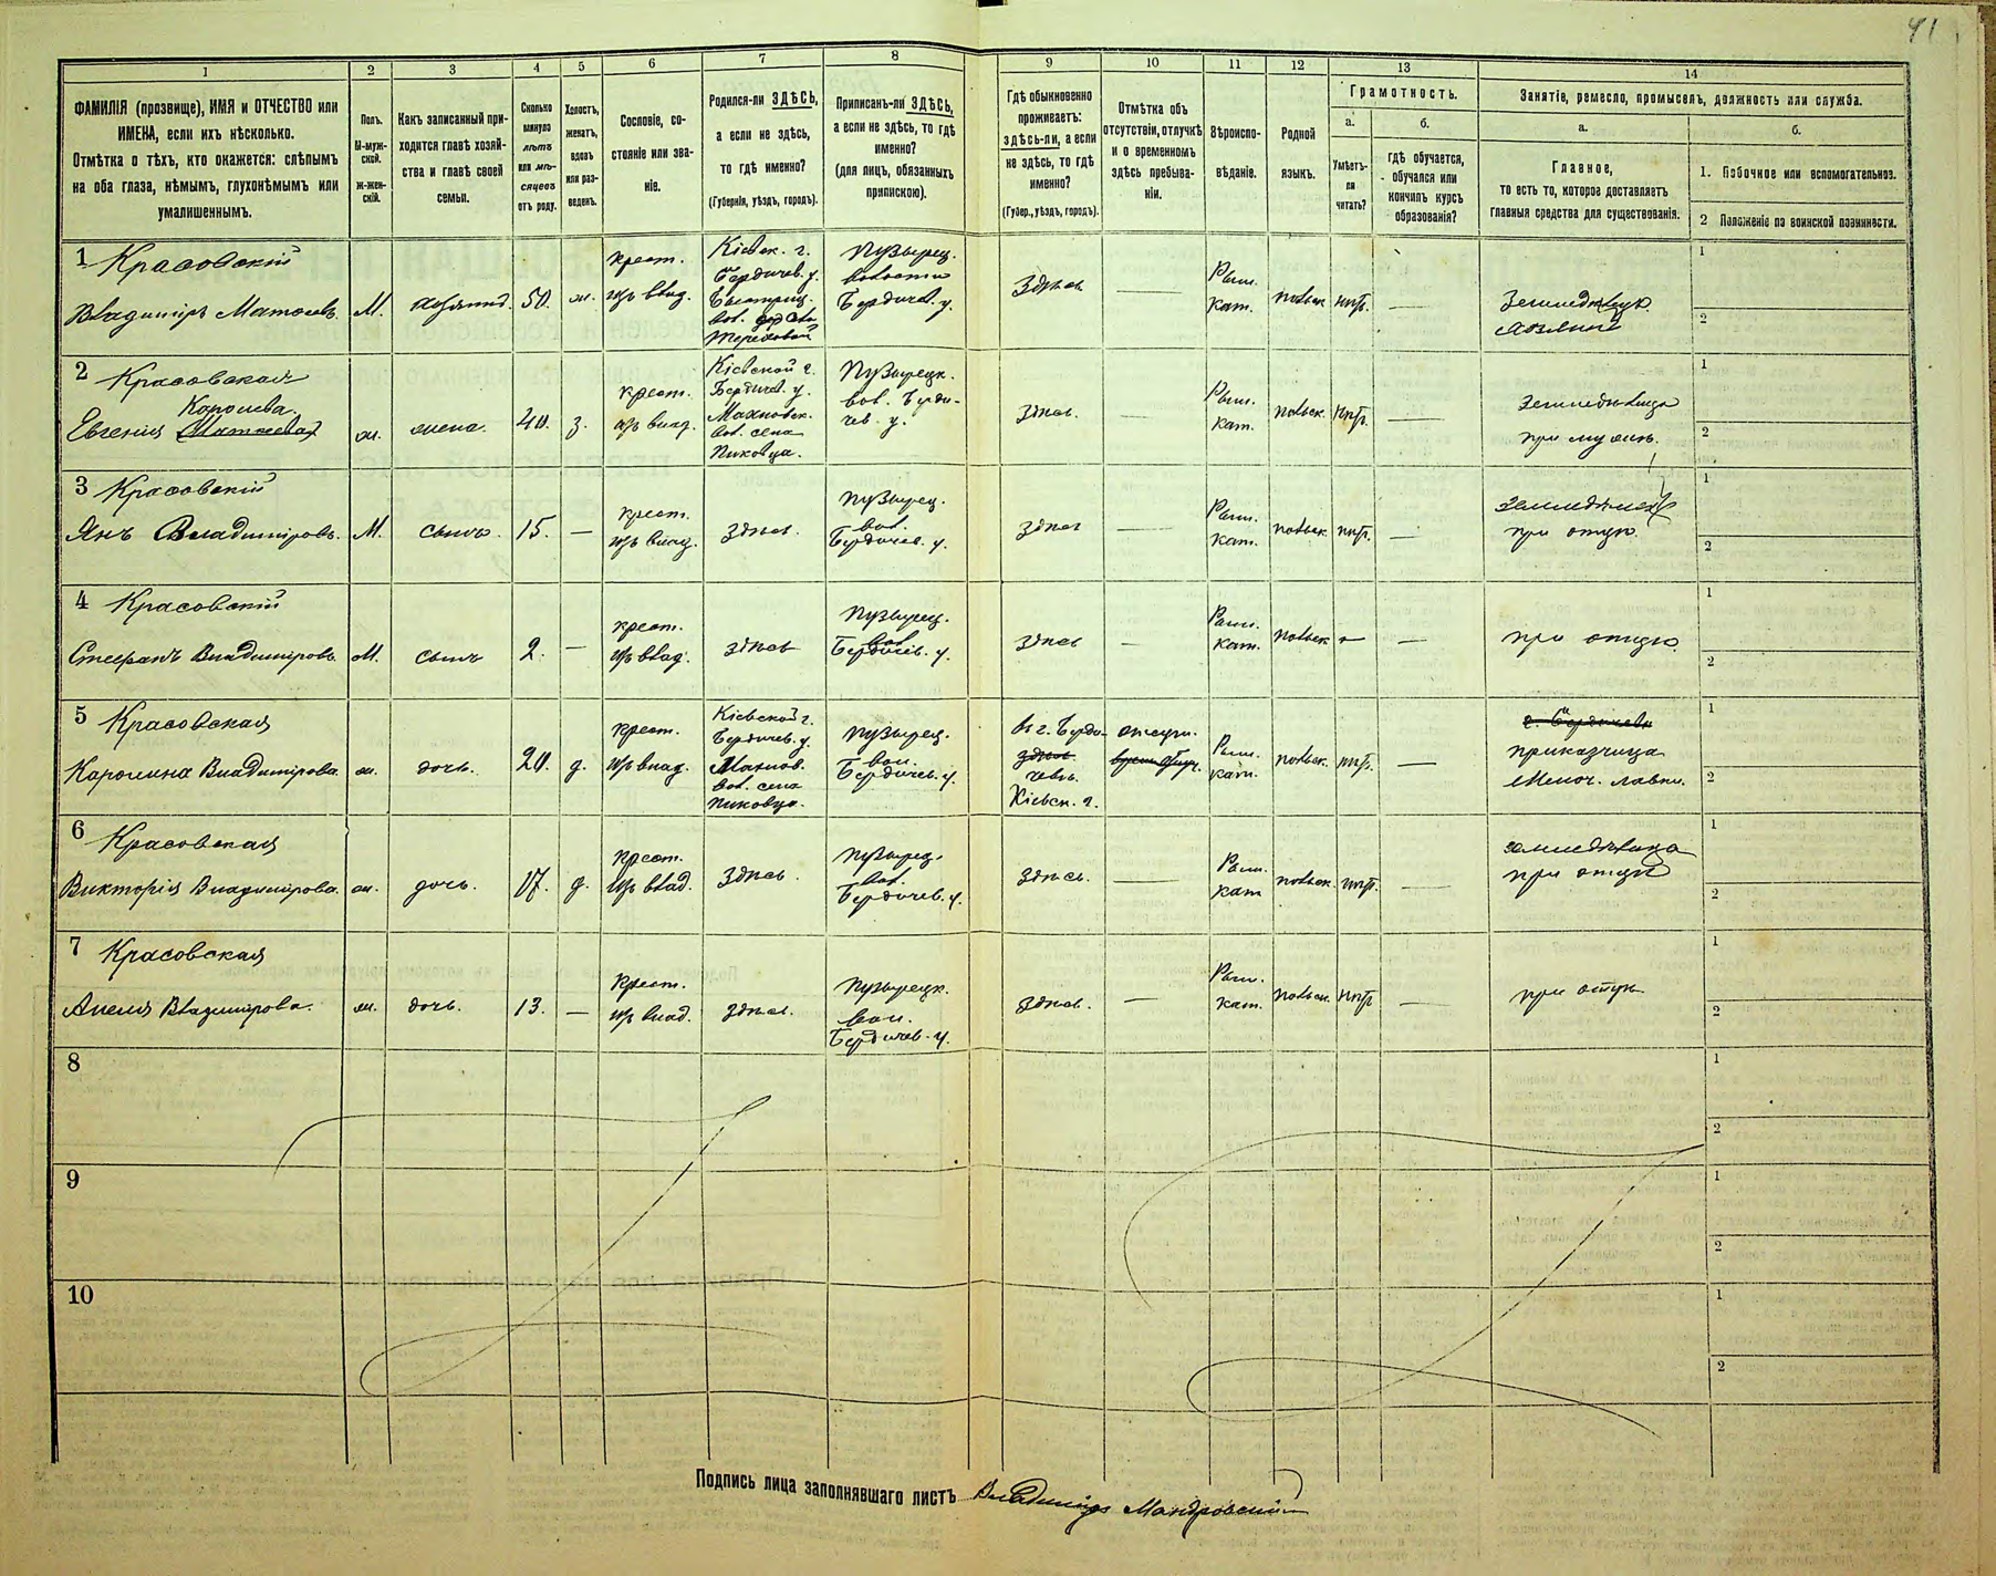 41
1
2
3
4
5
6
7
8
9
10
11
12
13
14
ФАМИЛІЯ (прозвище), ИМЯ и ОТЧЕСТВО или
ИМЕНА, если ихъ нѣсколько.
Отмѣтка о тѣхъ, кто окажется: слѣпымъ
на оба глаза, нѣмымъ, глухонѣмымъ или
умалишеннымъ.
Полъ.
М-муж-
ской.
Ж-жен-
скій.
Какъ записанный при-
ходится главѣ хозяй-
ства и главѣ своей
семьи.
Сколько
минуло
лѣтъ
или мѣ-
сяцевъ
отъ роду.
Холостъ,
женатъ,
вдовъ
или раз-
веденъ.
Сословіе, со-
стояніе или зва-
ніе.
Родился-ли ЗДѢСЬ,
а если не здѣсь,
то гдѣ именно?
(Губернія, уѣздъ, городъ).
Приписанъ-ли ЗДѢСЬ,
а если не здѣсь, то гдѣ
именно?
(для лицъ, обязанныхъ
припискою).
Гдѣ обыкновенно
проживаетъ:
здѣсь-ли, а если
не здѣсь, то гдѣ
именно?
(Губер., уѣздъ, городъ).
Отмѣтка объ
отсутствіи, отлучкѣ
и о временномъ
здѣсь пребыва-
ніи.
Вѣроиспо-
вѣданіе.
Родной
языкъ.
Грамотность.
а.
Умѣетъ-
ли
читать?
б.
гдѣ обучается,
обучался или
кончилъ курсъ
образованія?
Занятіе, ремесло, промыселъ, должность или служба.
а.
Главное,
то есть то, которое доставляетъ
главныя средства для существованія.
б.
1. Побочное или вспомогательное.
2 Положеніе по воинской повинности.
1 Красовскій
Владиміръ Матѳеевъ.
М.
хозяинъ.
50.
ж.
крест.
изъ влад.
Кіевск. г.
Бердичев. у.
Быстриц.
вол.
Пузырец.
волости
Бердичев. у.
Здѣсь
—
Рим.
кат.
польск.
—
2 Красовская
Каролева
Евгенія Матѳеева
ж.
жена.
40.
з.
крест.
изъ влад.
Кіевской г.
Бердичев. у.
Махновск.
вол. села
Пиковца.
Пузырецк.
вол. Берди-
чев. у.
здѣсь.
—
Рим.
кат.
польск.
—
при мужѣ.
3 Красовскій
Янъ Владиміровъ.
М.
сынъ.
15.
—
крест.
изъ влад.
здѣсь.
Пузырец.
вол.
Бердичев. у.
здѣсь
—
Рим.
кат.
польск.
—
при отцѣ.
4 Красовскій
Стефанъ Владиміровъ.
М.
сынъ
2.
—
крест.
изъ влад.
здѣсь
Пузырец.
вол.
Бердичев. у.
здѣсь
—
Рим.
кат.
польск.
—
—
при отцѣ.
5 Красовская
Каролина Владимірова.
ж.
дочь.
20.
д.
крест.
изъ влад.
Кіевской г.
Бердичев. у.
Махнов.
вол. села
Пиковца.
Пузырец.
вол.
Бердичев. у.
въ г. Берди-
здѣсь
чевѣ.
Кіевск. г.
отсут.
Рим.
кат.
польск.
—
приказчица
Мелоч. лавки.
6 Красовская
Викторія Владимірова.
ж.
дочь.
17.
д.
крест.
изъ влад.
Здѣсь.
Пузырец.
вол.
Бердичев. у.
Здѣсь.
—
Рим.
кат
польск.
—
при отцѣ
7 Красовская
Анеля Владимірова.
ж.
дочь.
13.
—
крест.
изъ влад.
здѣсь.
Пузырецк.
вол.
Бердичев. у.
здѣсь.
—
Рим.
кат.
польск.
—
при отцѣ
8
9
10
Подпись лица заполнявшаго листъ Владиміръ